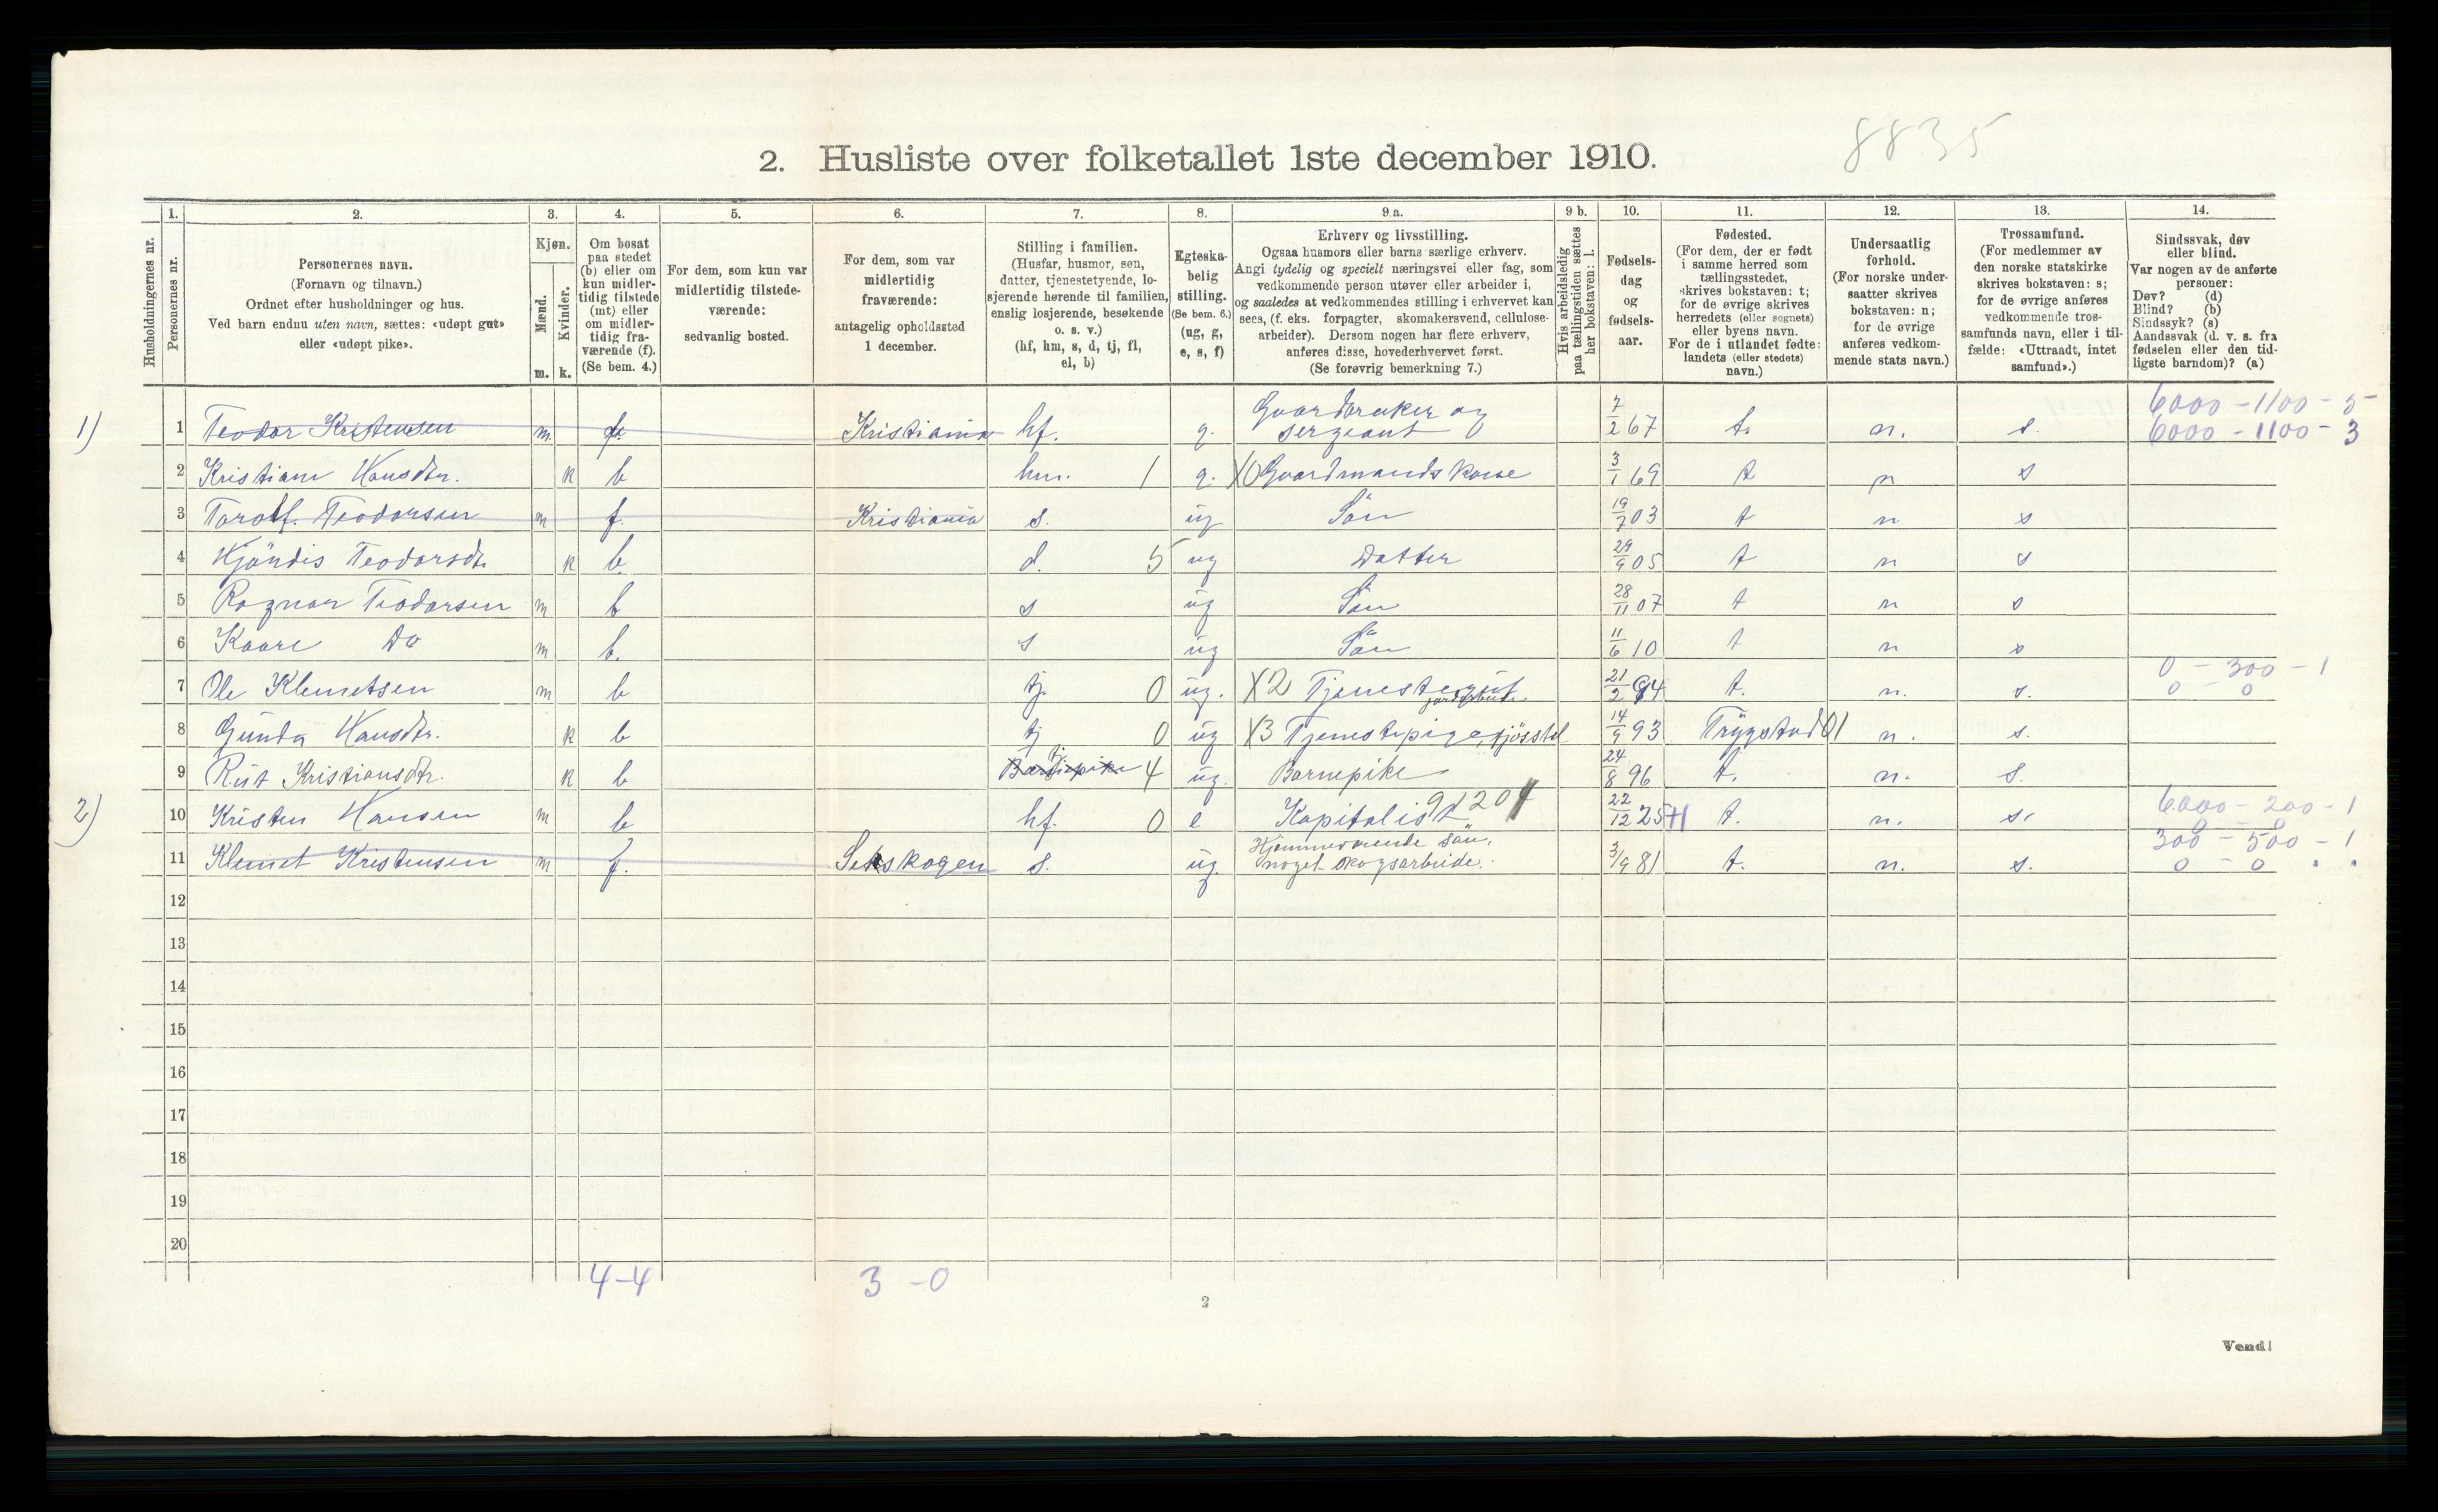 8835
2. Husliste over folketallet 1ste december 1910.
Husholdningernes nr.
1.
Personernes nr.
2.
Personernes navn.
(Fornavn og tilnavn.)
Ordnet efter husholdninger og hus.
Ved barn endnu uten navn, sættes: «udøpt gut»
eller «udøpt pike».
3.
Kjøn.
Mænd.
Kvinder.
m. k.
4.
Om bosat
paa stedet
(b) eller om
kun midler-
tidig tilstede
(mt) eller
om midler-
tidig fra-
værende (f).
(Se bem. 4.)
5.
For dem, som kun var
midlertidig tilstede-
værende:
sedvanlig bosted.
6.
For dem, som var
midlertidig
fraværende:
antagelig opholdssted
1 december.
7.
Stilling i familien.
(Husfar, husmor, søn,
datter, tjenestetyende, lo-
sjerende hørende til familien,
enslig losjerende, besøkende
o. s. v.)
(hf, hm, s, d, tj, fl,
el, b)
8.
Egteska-
belig
stilling.
(Se bem. 6.)
(ug, g,
e, s, f)
9 a.
Erhverv og livsstilling.
Ogsaa husmors eller barns særlige erhverv.
Angi tydelig og specielt næringsvei eller fag, som
vedkommende person utøver eller arbeider i,
og saaledes at vedkommendes stilling i erhvervet kan
sees, (f. eks. forpagter, skomakersvend, cellulose-
arbeider). Dersom nogen har flere erhverv,
anføres disse, hovederhvervet først.
(Se forøvrig bemerkning 7.)
9 b.
Hvis arbeidsledig
paa tællingstiden sættes
her bokstaven: l.
10.
Fødsels-
dag
og
fødsels-
aar.
11.
Fødested.
(For dem, der er født
i samme herred som
tællingsstedet,
skrives bokstaven: t;
for de øvrige skrives
herredets (eller sognets)
eller byens navn.
For de i utlandet fødte:
landets (eller stedets)
navn.)
12.
Undersaatlig
forhold.
(For norske under-
saatter skrives
bokstaven: n;
for de øvrige
anføres vedkom-
mende stats navn.)
13.
Trossamfund.
(For medlemmer av
den norske statskirke
skrives bokstaven: s;
for de øvrige anføres
vedkommende tros-
samfunds navn, eller i til-
fælde: «Uttraadt, intet
samfund».)
14.
Sindssvak, døv
eller blind.
Var nogen av de anførte
personer:
Døv? (d)
Blind? (b)
Sindssyk? (s)
Aandssvak (d. v. s. fra
fødselen eller den tid-
ligste barndom)? (a)
1) 1 Teodor Kristensen m f. Kristiania hf. g. Gaardbruker og sergeant 7/2 67 t. n. s. 6000 - 1100 - 5
6000 - 1100 - 3
2 Kristiane Hansdtr. k b hm. 1 g. X0 Gaardmandskone 3/1 69 t n s
3 Torolf. Teodorsen m f. Kristiania s. ug Sön 19/7 03 t n s
4 Hjördis Teodorsdt. k b. d. 5 ug Datter 29/9 05 t n s
5 Ragnar Teodorsen m b s ug Sön 28/11 07 t n s
6 Kaare Do m b. s ug Sön 11/6 10 t n s
7 Ole Klemetsen m b tj. 0 ug. X2 Tjenestegut jordarbeide 21/2 94 t. n. s. 0 - 300 - 1
0 - 0
8 Gunda Hansdtr. k b tj 0 ug X3 Tjenestepige, fjösstel 14/9 93 Trygstad 01 n. s.
9 Rut Kristiansdtr. k b Barnepike tj 4 ug. Barnepike 24/8 96 t. n. s.
2) 10 Kristen Hansen m b hf. 0 e Kapitalist 9d 20 22/12 25 +1 t. n. s. 6000 - 200 - 1
0 - 0
11 Klemet Kristensen m f. Setskogen s. ug. Hjemmeværende sön, noget skogsarbeide. 3/9 81 t. n. s. 300 - 500 - 1
0 - 0
12
13
14
15
16
17
18
19
20
4-4 3-0
2
Vend!